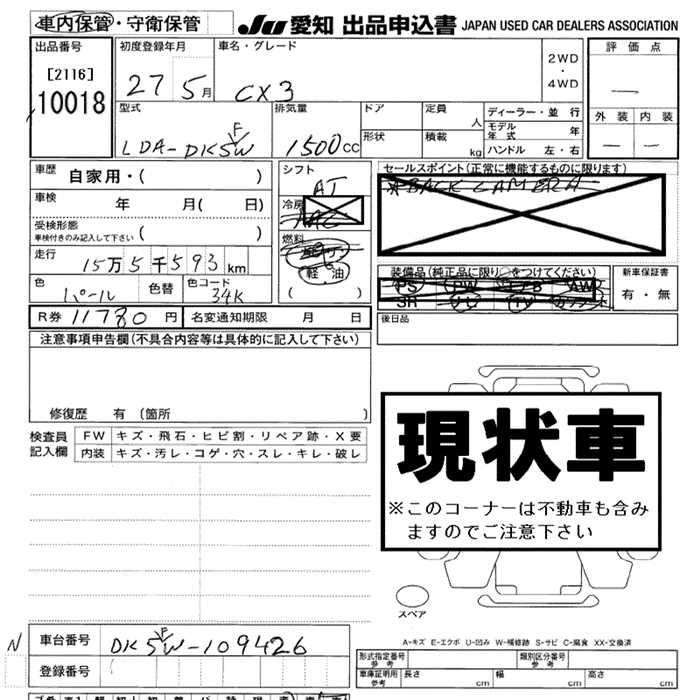 車内保管・守衛保管
JU 愛知 出品申込書 JAPAN USED CAR DEALERS ASSOCIATION
出品番号
[2116]
10018
初度登録年月
27 5月
車名・グレード
CX3
2WD
・
4WD
評価点
—
外装 内装
— —
型式
LDA-DK5FW
排気量
1500cc
ドア
形状
定員
人
積載
kg
ディーラー・並行
モデル年式 年
ハンドル 左・右
車歴 自家用・( )
車検 年 月( 日)
受検形態
車検付きのみ記入して下さい ( )
走行 15万5千593km
色 パール
色替
色コード 34K
シフト
AT
冷房
AAC
燃料
ガソリン
軽油
( )
セールスポイント(正常に機能するものに限ります)
☆BACK CAMERA
装備品(純正品に限り○をつけてください)
PS PW エアB AW
SR ナビ TV カワシート
新車保証書
有・無
R券 11780円
名変通知期限 月 日
後日品
注意事項申告欄(不具合内容等は具体的に記入して下さい)
修復歴 有(箇所 )
検査員
記入欄
FW キズ・飛石・ヒビ割・リペア跡・X要
内装 キズ・汚レ・コゲ・穴・スレ・キレ・破レ
現状車
※このコーナーは不動車も含み
ますのでご注意下さい
スペア
A-キズ E-エクボ U-凹み W-補修跡 S-サビ C-腐食 XX-交換済
N
車台番号 DK5FW-109426
登録番号
形式指定番号
参考
類別区分番号
参考
車庫証明用
参考
長さ cm
幅 cm
高さ cm